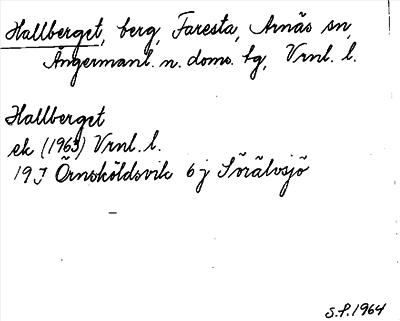 Hallberget, berg, Faresta, Arnäs sn,
Ångermanl. n. doms. tg, Vrnl. l.
Hallberget
ek (1963) Vrnl. l.
19J Örnsköldsvik 6j Sörälvsjö
S.P. 1964